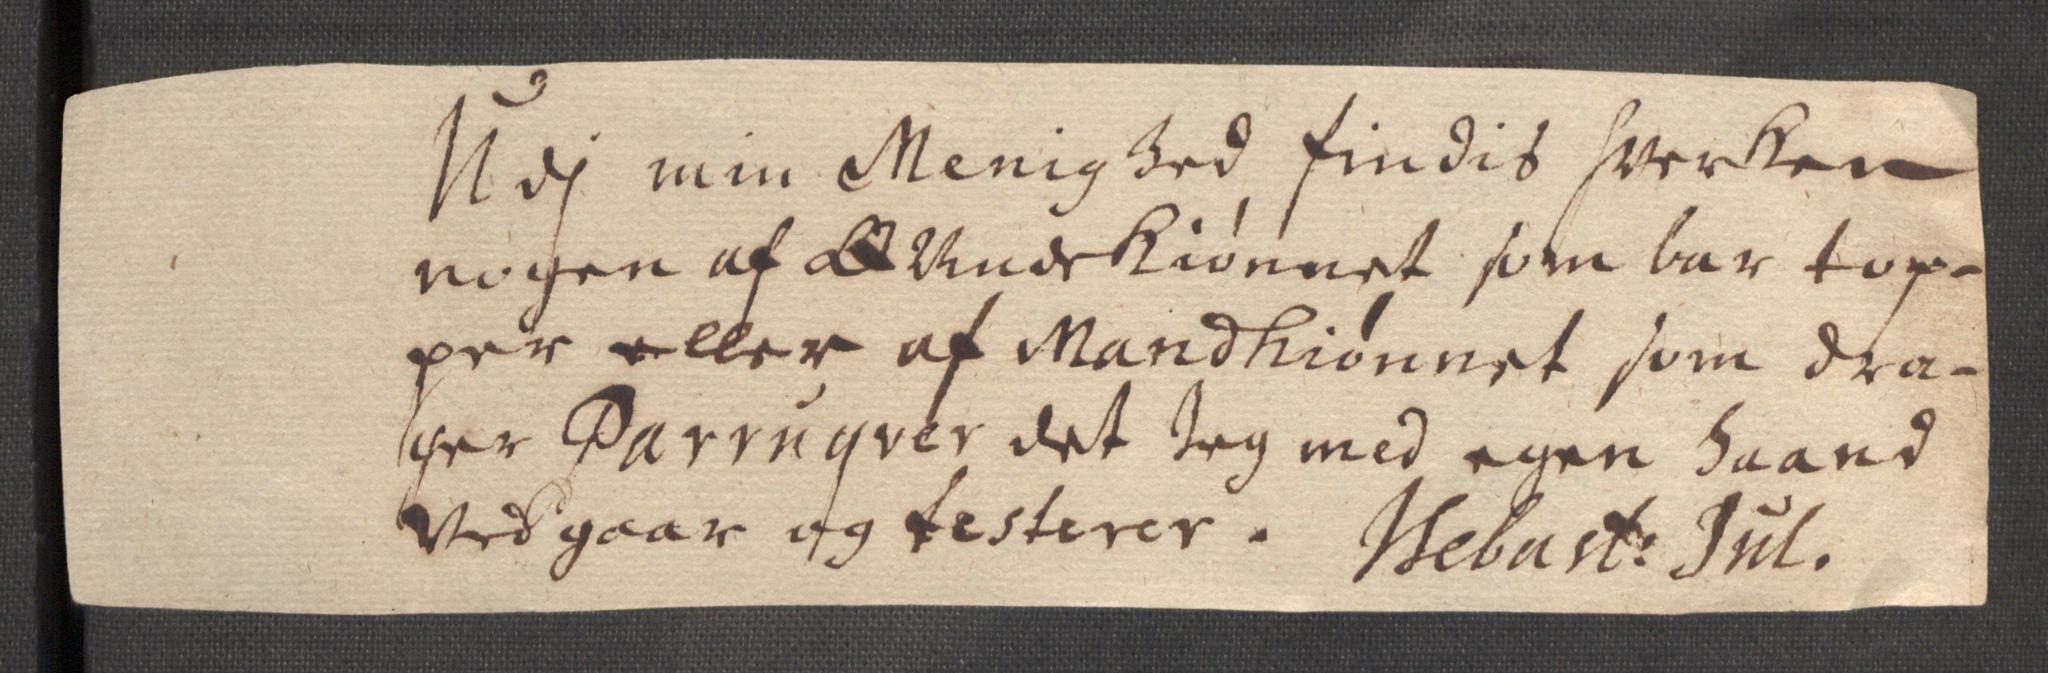 Udj min Menighed findis hverken
nogen af Qvindekiønnet som bar top-
per eller af Mandkiønnet som dra-
ger Parruqver det Jeg med egen haand
vedgaar og testerer. Sebast: Jul.